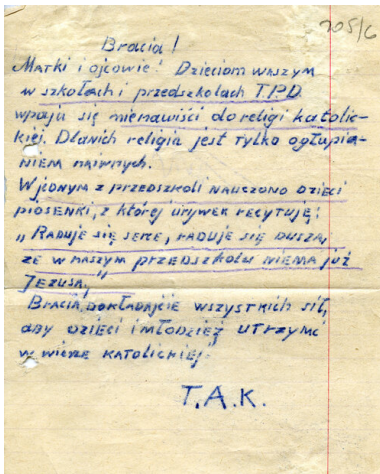 705/6
Bracia!
Matki i ojcowie! Dzieciom waszym
w szkołach i przedszkolach T.P.D.
wpaju się nienawiści do religi katolic-
kiej. Dlanich religia jest tylko ogłupia-
niem naiwnych.
W jednym z przedszkoli nauczono dzieci
piosenki, z której urywek recytuję:
„Raduje się serce, raduje się dusza,
że w naszym przedszkolu niema już
Jezusa„
Bracia, dokładajcie wszystkich sił,
aby dzieci i młodzież utrzymć
w wierze katolickiej.
T.A.K.